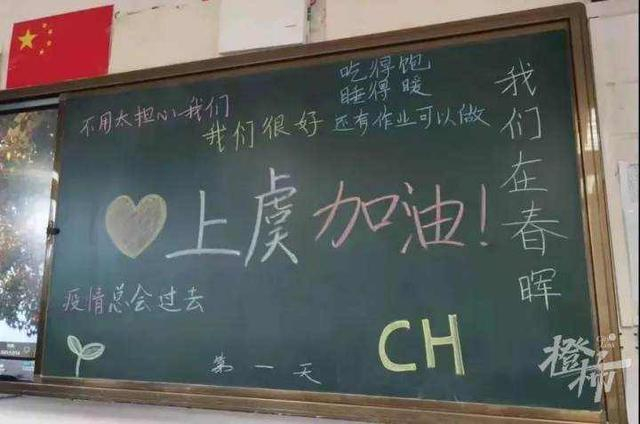 不用太担心我们
我们很好
吃得饱
睡得暖
还有作业可以做
我们在春晖
上虞加油!
疫情总会过去
CH
第一天
橙柿